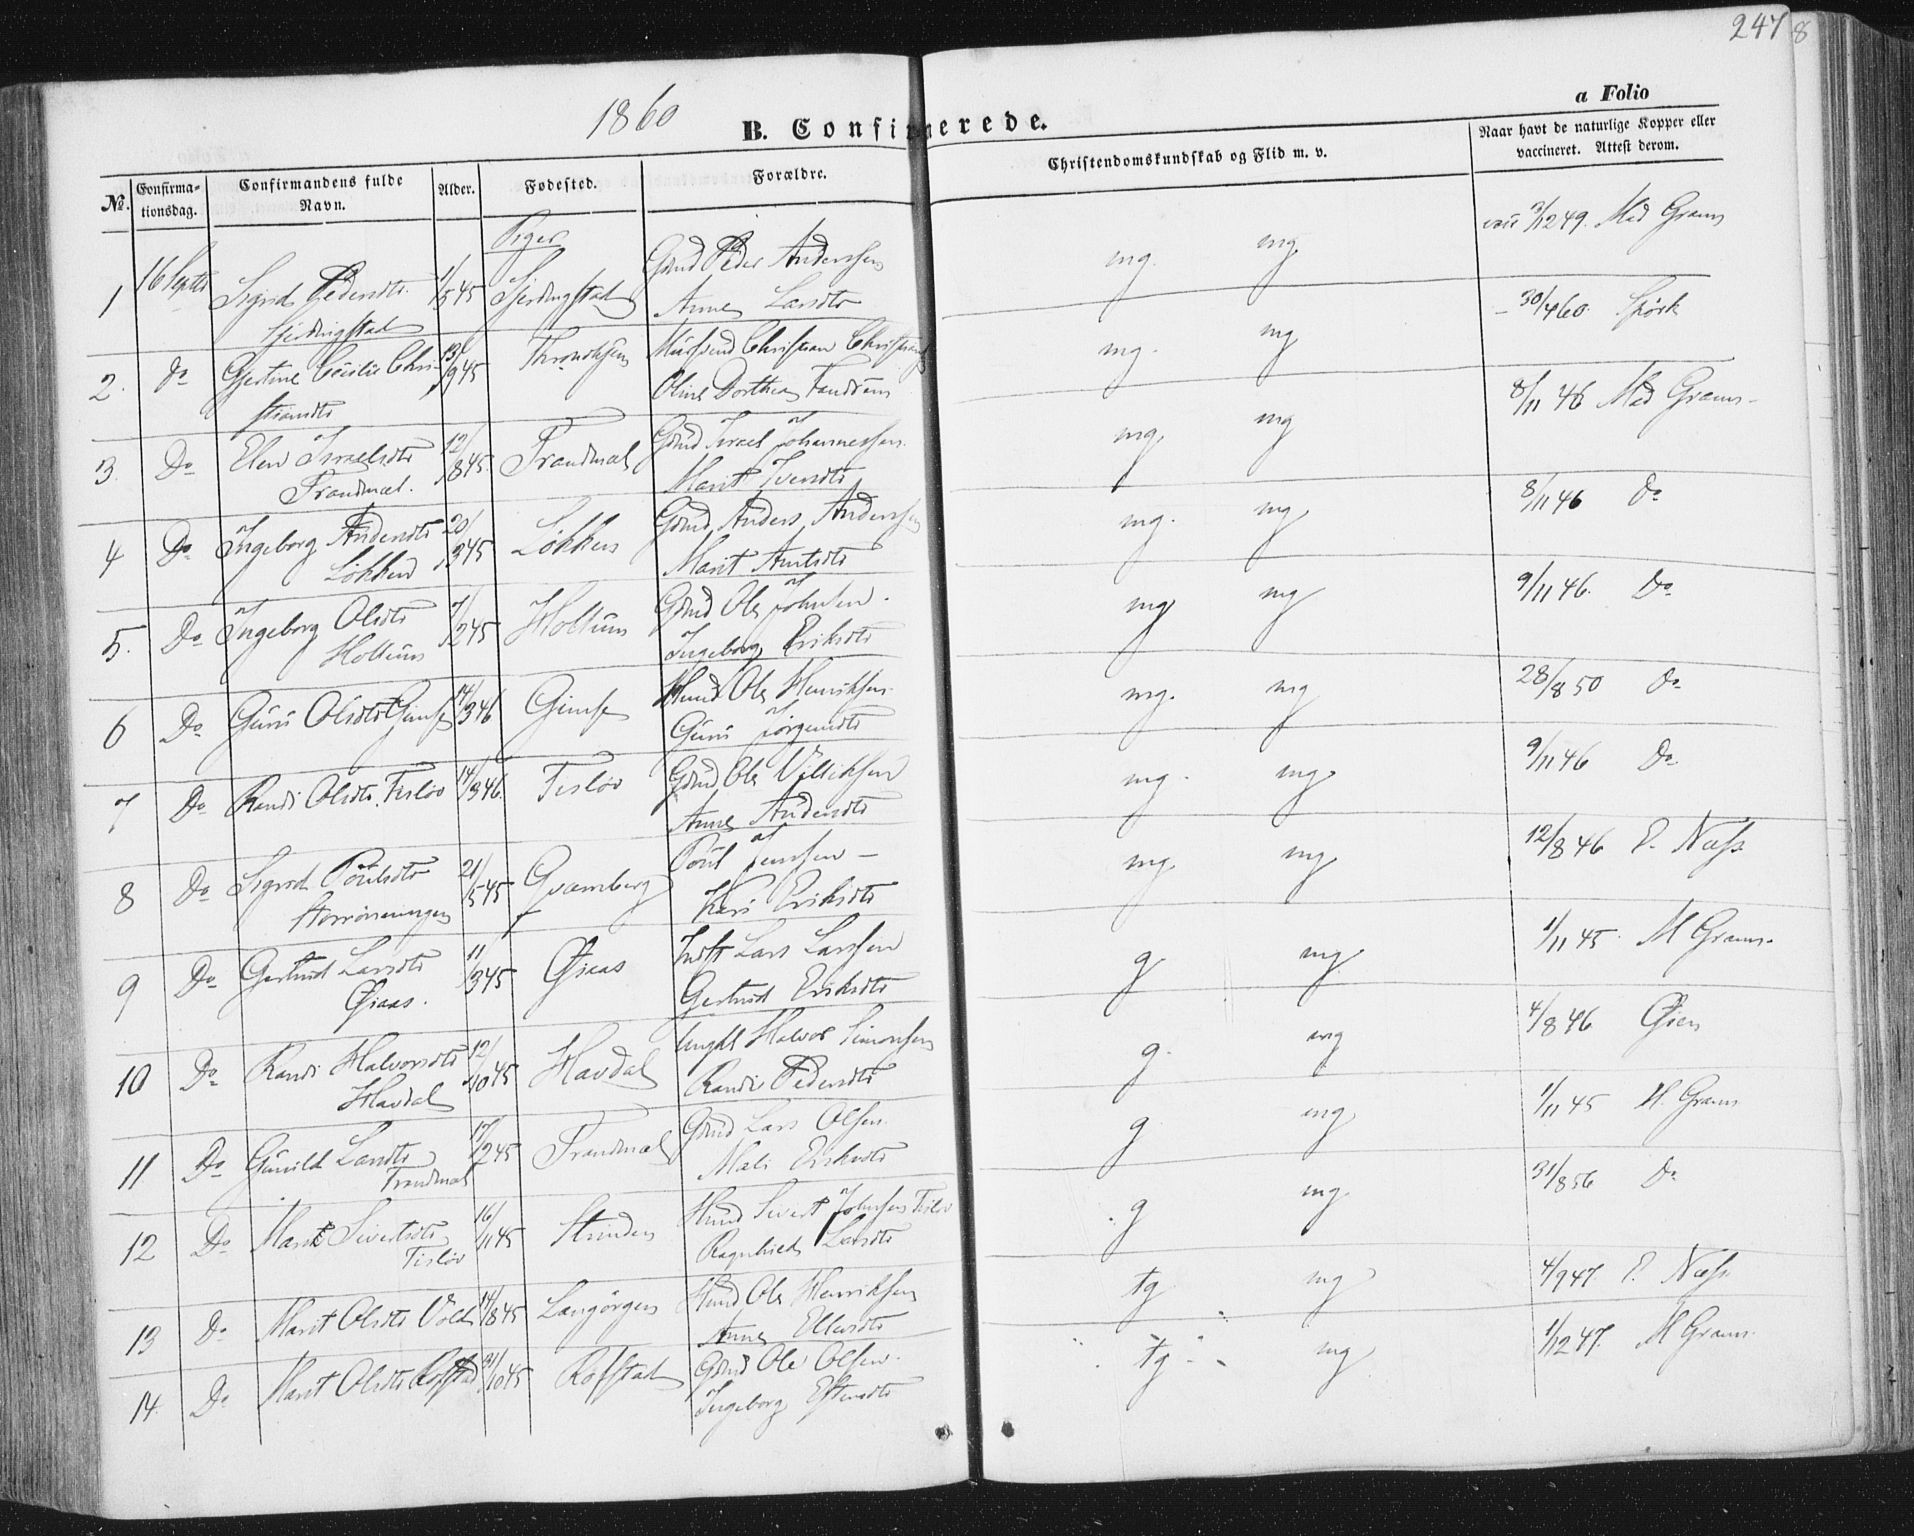 247 8
1860
B. Confirmerede.
a Folio
№. Confirma-tionsdag. Confirmandens fulde Navn. Alder. Fødested. Forældre. Christendomskundskab og Flid m. v. Naar havt de naturlige Kopper eller vaccineret. Attest derom.
Piger
1 16 Septbr Sigrid Pedersdtr 1/5 45 Gmd Peder Anderssen mg. mg. 3/12 49. Med Grams
Anne Larsdtr
2. do Gjertine Cecilie Chri- 13/9 45 Throndhjem Christian mg. mg 30/4 60. Spörk
stiansdtr Oline Dorthea
3. Do Elen Israelsdtr 12/8 45. Frandmæl Gmd Israel Johannessen mg. mg 8/11 46 Med Grams
Frandmæl. Marit Iversdtr
4 Do Ingeborg Andersdtr 20/3 45 Løkken Gmd Anders Anderssen mg. mg 8/11 46 Do
Løkken Marit Arntsdtr
5. Do Ingeborg Olsdtr 7/2 45 Holtum Gmd Ole Johnsen. mg mg 9/11 46. Do
Holtum Ingeborg Eriksdtr
6 Do Guru Olsdtr Gimse 14/3 46 Gimse Hmd Ole Henriksen mg. mg 28/8 50 do
Guru Jørgensdtr
7 Do Randi Olsdtr Tisløv 14/3 46. Tisløv Gmd Ole Villiksen mg. mg. 9/11 46 Do
Anne Andersdtr
8 Do Sigrid Poulsdtr 21/5 45 Qvamberg Poul Jenssen mg. mg. 12/8 46 P. Næss
Kari Eriksdtr
9 Do Gertrud Larsdtr 11/3 45 Øiaas Indst Lars Larssen g mg 1/11 45. M Grams.
Øiaas. Gertrud Eriksdtr
10 Do Randi Halvorsdtr 12/10 45 Havdal Ungkl Halvor Simonsen g. mg 4/8 46 Øien
Havdal Randi Pedersdtr
11 Do Gunild Larsdtr 17/2 45 Frandmæl Gmd Lars Olsen g mg 1/11 45 M. Grams
Frandmæl Mali Eriksdtr
12 Do Marit Sivertsdtr 16/11 45 Strinden Hmd Sivert Johnsen Tisløv g mg 31/8 56 Do
Tisløv Ragnhild Larsdtr
13 Do Marit Olsdtr Vold 14/8 45 Langørgen Hmd Ole Henriksen tg mg 4/9 47 P. Næss
Anne Ellevsdtr
14. Do Marit Olsdtr Rofstad 31/10 45 Rofstad Gmd Ole Olsen tg mg 1/12 47. M Grams.
Ingeborg Estensdtr